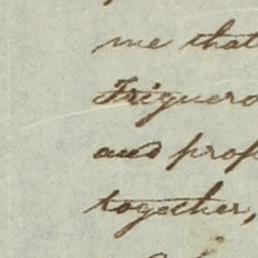 me that
Friguero
and prof
together,